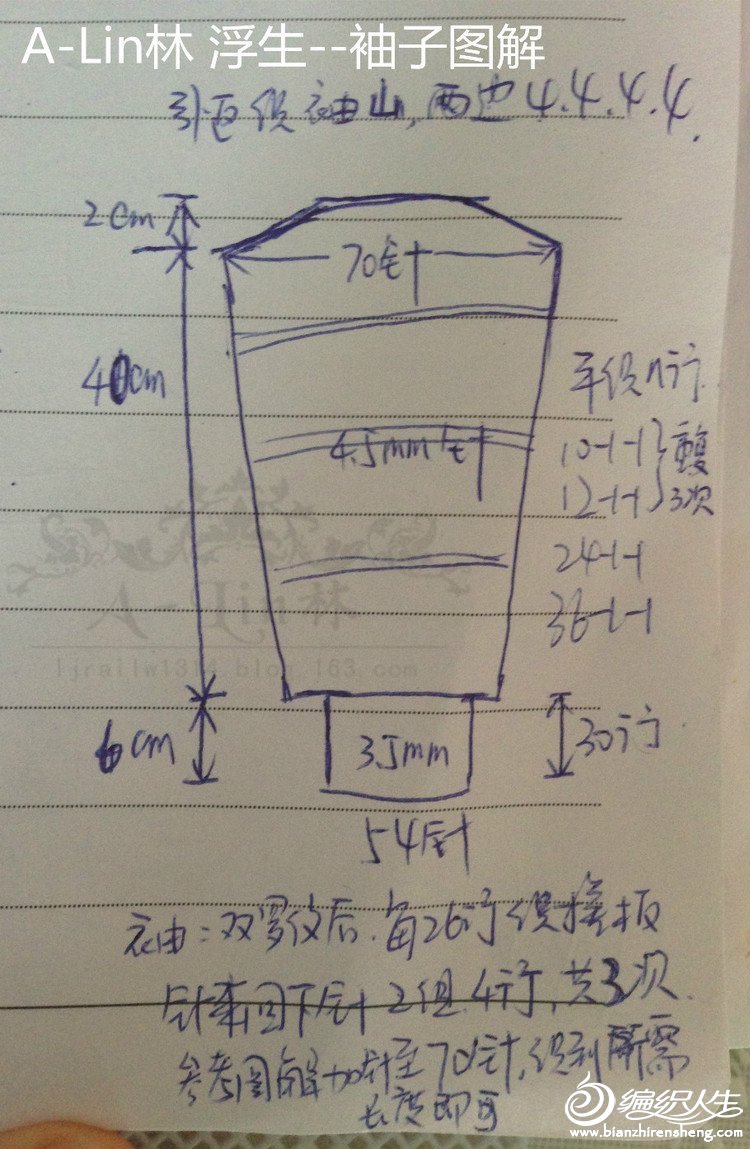 A-Lin林 浮生--袖子图解
引返织袖山,两边4.4.4.4.
2cm
70针
40cm
平织n行
4.5mm针
10-1-1
12-1-1
重复
3次
24-1-1
36-1-1
A-Lin林
6cm
3.5mm
30行
54针
袖:双罗纹后.每26行织搓板
针来回下针2组4行,共3次.
参考图解加针至70针,织到所需
长度即可
编织人生
www.bianzhirensheng.com